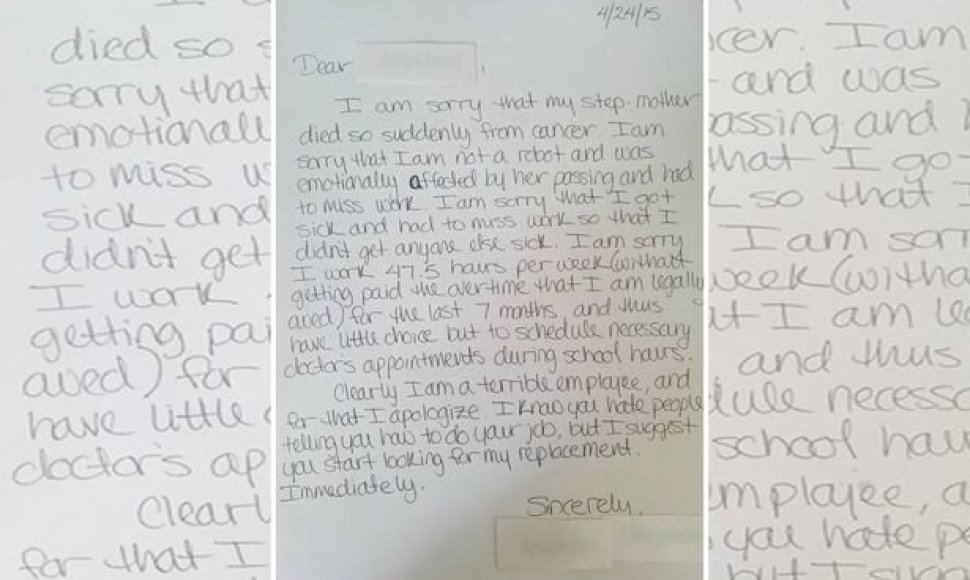 died so s
sorry that
emotionall
to miss w
sick and
didn't get
I work
getting pai
owed) for
have little
doctor's ap
Clearl
for that I
4/24/15
Dear
I am sorry that my step-mother
died so suddenly from cancer. I am
sorry that I am not a robot and was
emotionally affected by her passing and had
to miss work. I am sorry that I got
sick and had to miss work so that I
didn't get anyone else sick. I am sorry
I work 47.5 hours per week (without
getting paid the overtime that I am legally
owed) for the last 7 months, and thus
have little choice but to schedule necessary
doctor's appointments during school hours.
Clearly I am a terrible employee, and
for that I apologize. I know you hate people
telling you how to do your job, but I suggest
you start looking for my replacement.
Immediately.
Sincerely,
cer. I am
and was
assing and
that I go
so that I
I am sorr
week (witho
at I am leg
and thus
dule necessa
school hou
mployee, a
you hate pe
but I sugg